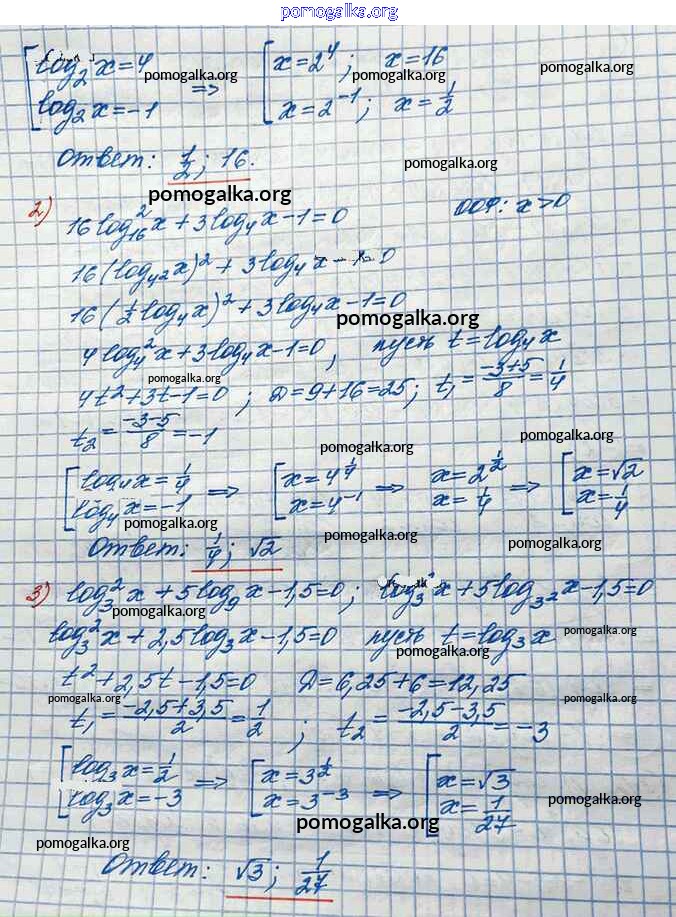 pomogalka.org
log₂x=4 => x=2⁴; x=16
pomogalka.org pomogalka.org pomogalka.org
log₂x=-1 x=2⁻¹; x=1/2
Ответ: 1/2; 16.
pomogalka.org
pomogalka.org
2) 16log²₁₆x+3log₄x-1=0 ООФ: x>0
16(log₄²x)²+3log₄x-1=0
16(1/2log₄x)²+3log₄x-1=0
pomogalka.org
4log₄²x+3log₄x-1=0, пусть t=log₄x
pomogalka.org
4t²+3t-1=0; D=9+16=25; t₁=(-3+5)/8=1/4
t₂=(-3-5)/8=-1
pomogalka.org pomogalka.org
log₄x=1/4 => x=4^(1/4) => x=2^(1/2) => x=√2
log₄x=-1 x=4⁻¹ x=1/4 x=1/4
pomogalka.org pomogalka.org
Ответ: 1/4; √2
pomogalka.org
3) log₃²x+5log₉x-1,5=0; log₃²x+5log₃²x-1,5=0
pomogalka.org
log₃²x+2,5log₃x-1,5=0 пусть t=log₃x
pomogalka.org
pomogalka.org
t²+2,5t-1,5=0 D=6,25+6=12,25
pomogalka.org pomogalka.org pomogalka.org
t₁=(-2,5+3,5)/2=1/2; t₂=(-2,5-3,5)/2=-3
log₃x=1/2 => x=3^(1/2) => x=√3
log₃x=-3 x=3⁻³ x=1/27
pomogalka.org
pomogalka.org
pomogalka.org pomogalka.org
Ответ: √3; 1/27